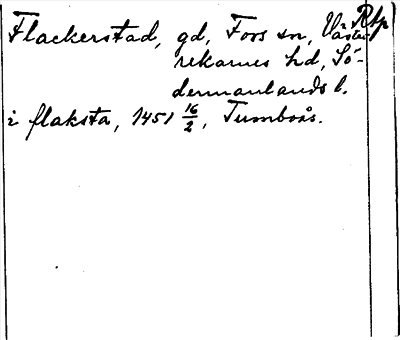 Rap
Flackerstad, gd, Fors sn, Väster
rekarnes hd, Sö-
dermanlands l.
i flaksta, 1451 16/2, Tumboås.